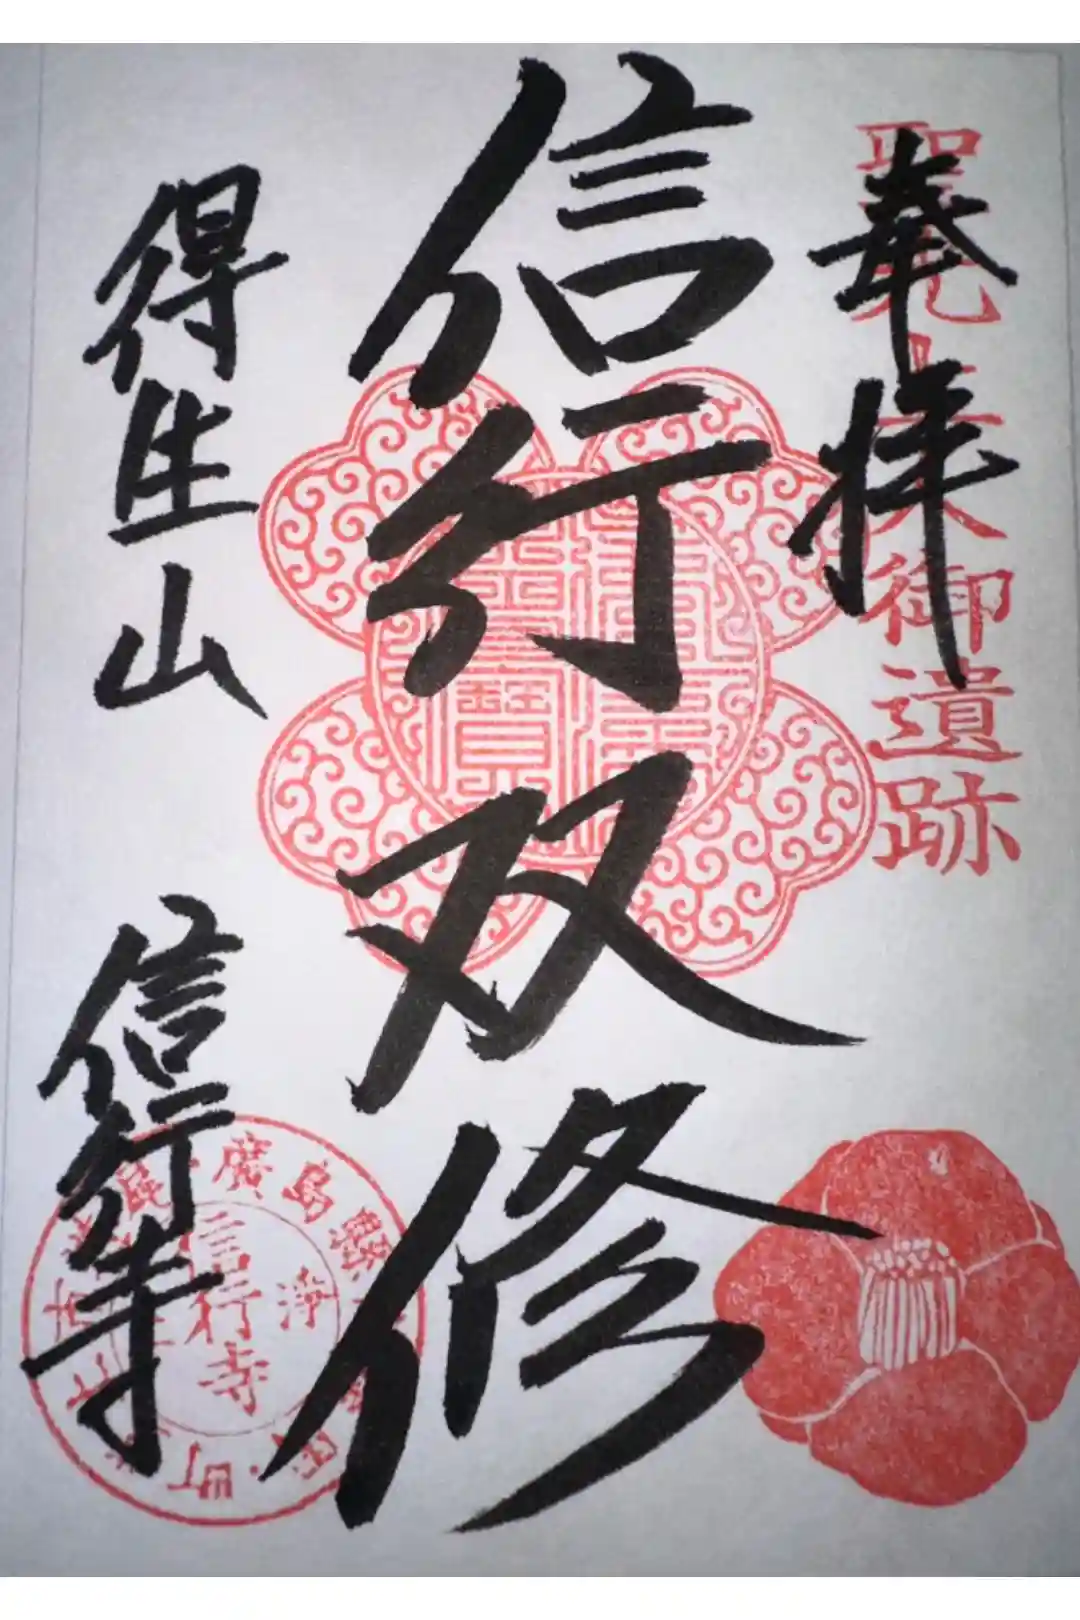 奉拝
御遺跡
信行双修
得生山
信行寺
廣島縣
淨
信行寺